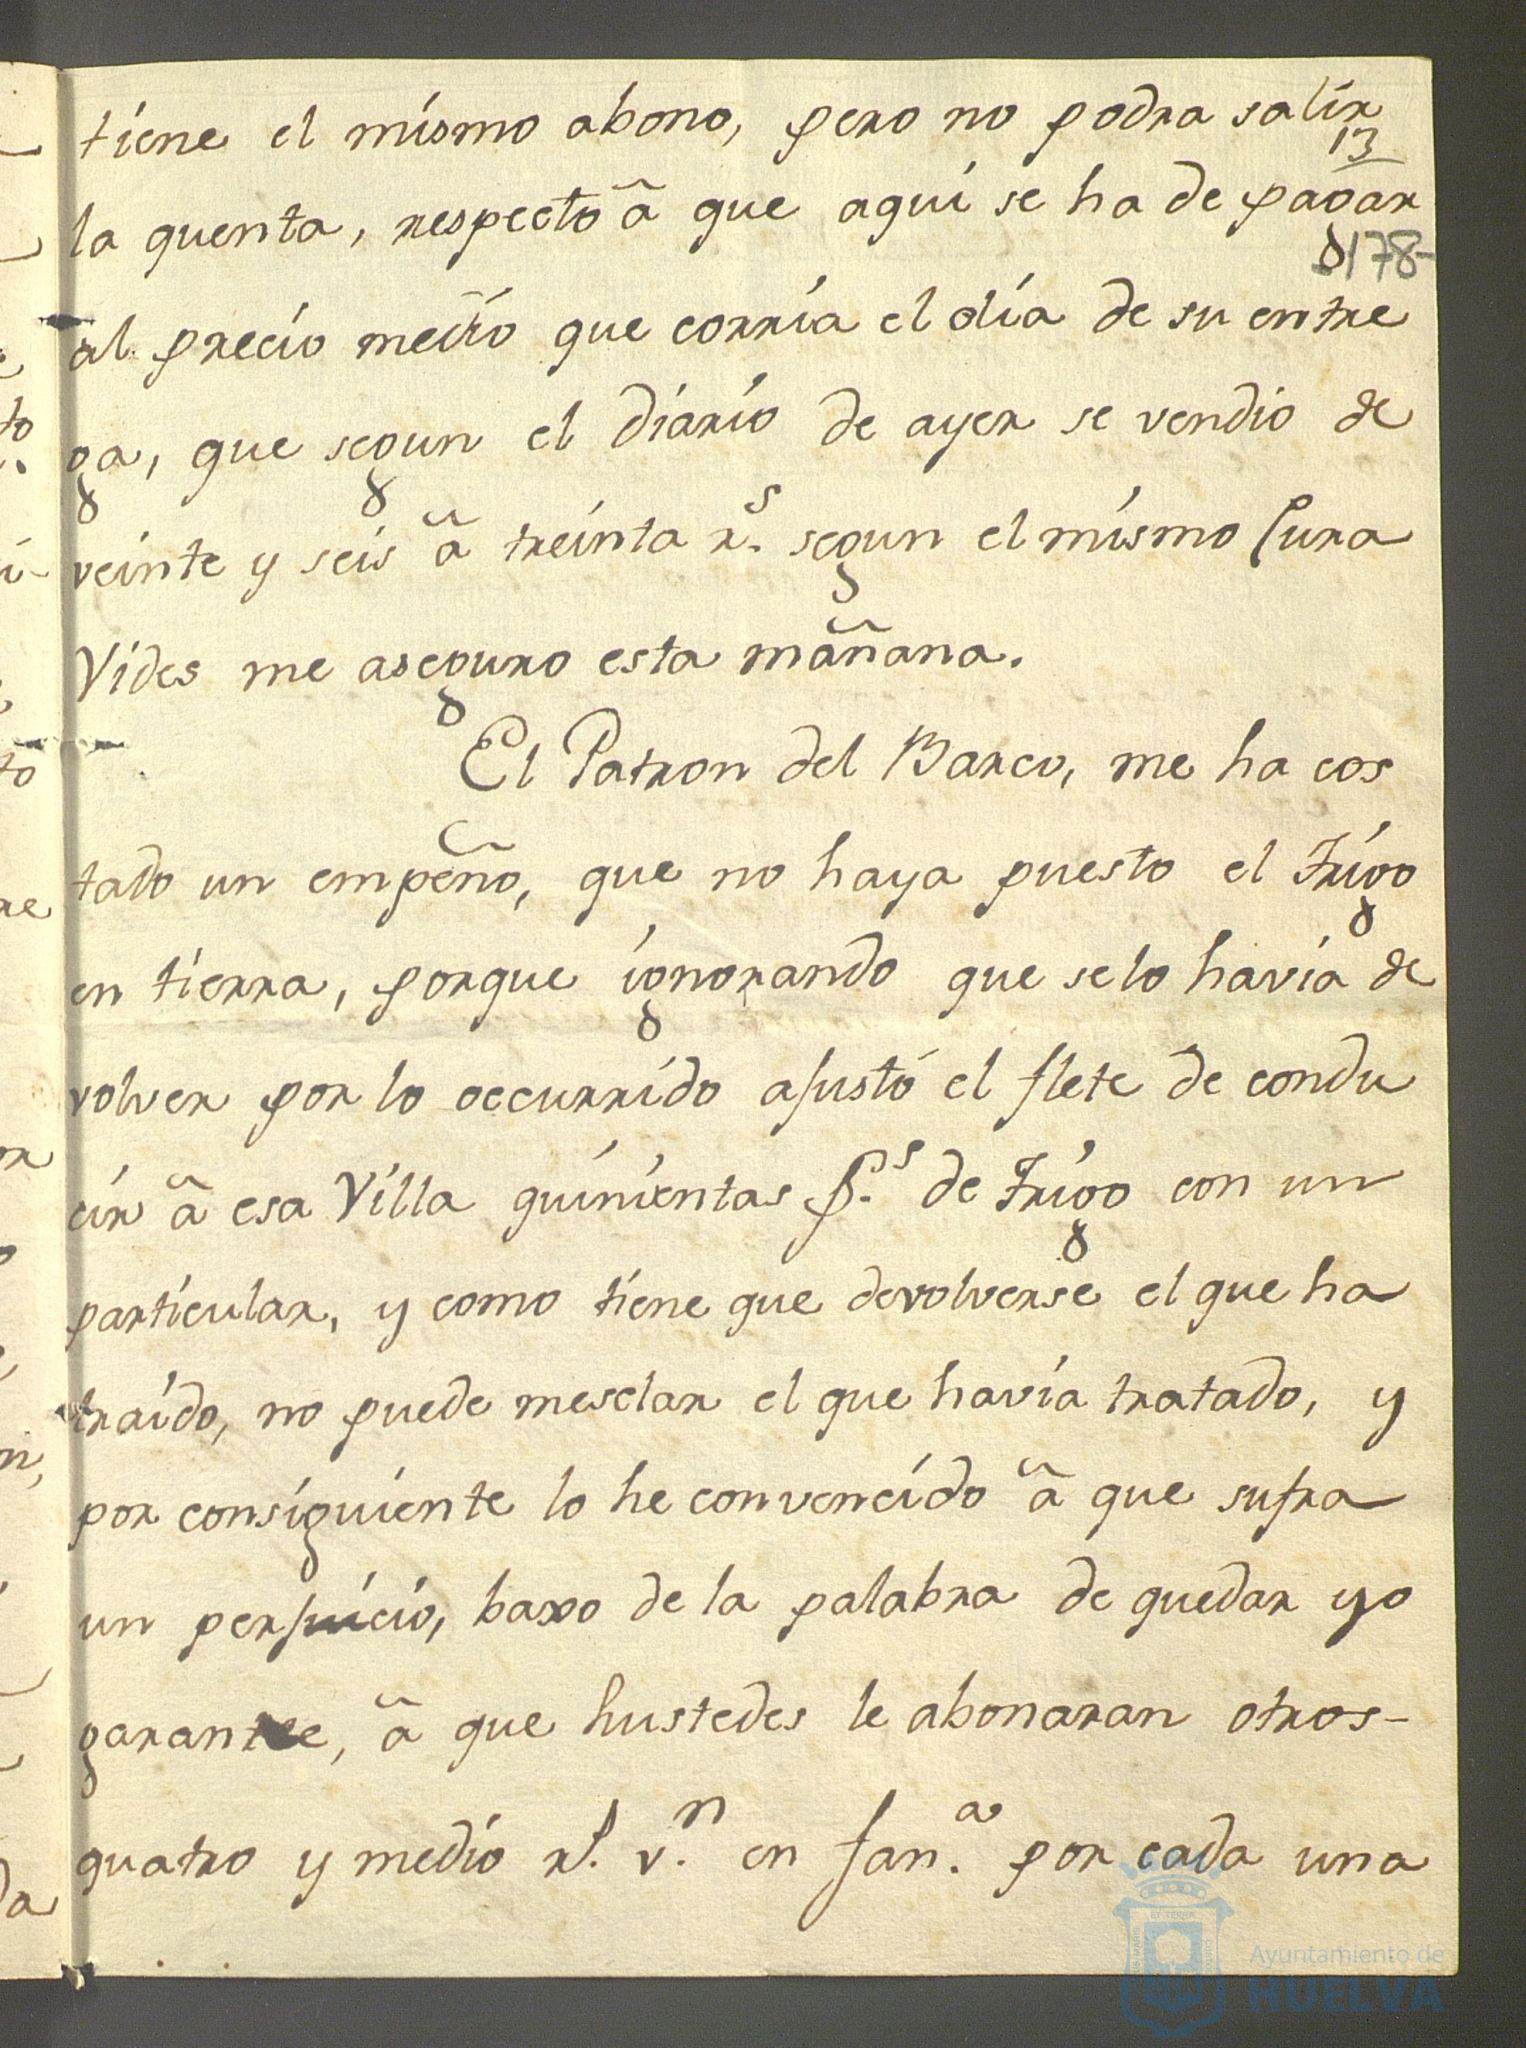 tiene el mismo abono, pero no podra salir
13
la quenta, respecto â que aqui se ha de pagar
178-
al precio medio que corria el dia de su entre
ga, que segun el diario de ayer se vendio de
veinte y seis â treinta r.s segun el mismo Cura
Vides me aseguro esta mañana.
El Patron del Barco, me ha cos
tado un empeño, que no haya puesto el Trigo
en tierra, porque ignorando que se lo havia de
volver por lo occurrido ajustó el flete de condu
cir â esa Villa quinientas f.s de Trigo con un
particular, y como tiene que devolverse el que ha
traido, no puede mesclar el que havia tratado, y
por consiguiente lo he convencido â que sufra
un perjuicio, baxo de la palabra de quedar yo
garante, â que hustedes le abonaran otros-
quatro y medio r.s v.n en fan.a por cada una
Ayuntamiento de
HUELVA